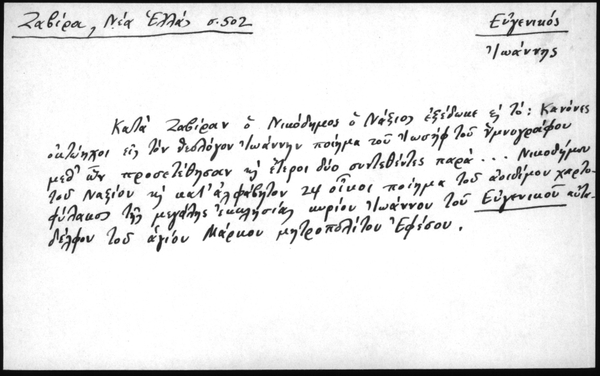 Ζαβίρα, Νέα Ἑλλάς σ. 502
Εὐγενικός
Ἰωάννης
Κατά Ζαβίραν ὁ Νικόδημος ὁ Νάξιος ἐξέδωκε καὶ τό: Κανόνες
ὀκτώηχοι εἰς τὸν θεολόγον Ἰωάννην ποίημα τοῦ Ἰωσήφ τοῦ ὑμνογράφου
μεθ' ὧν προσετέθησαν καὶ ἕτεροι δύο συντεθέντες παρὰ ... Νικοδήμου
τοῦ Ναξίου καὶ κατ' ἀλφάβητον 24 οἶκοι ποίημα τοῦ ἀοιδίμου χαρτο-
φύλακος τῆς μεγάλης ἐκκλησίας κυρίου Ἰωάννου τοῦ Εὐγενικοῦ αὐτα-
δέλφου τοῦ ἁγίου Μάρκου μητροπολίτου Ἐφέσου.